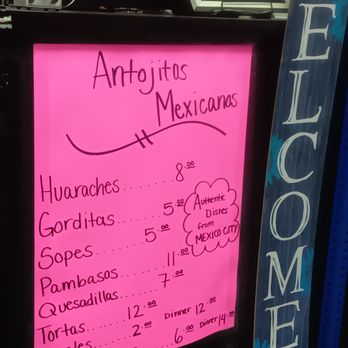 Antojitos
Mexicanas
Huaraches......8.00
Gorditas......5.50
Sopes......5.00
Pambasos......11.00
Quesadillas......7.00
Tortas....12.00 Dinner 12.00
2.00 6.00 Dinner 14.00
Authentic
Dishes
from
MEXICO CITY
ELCOME